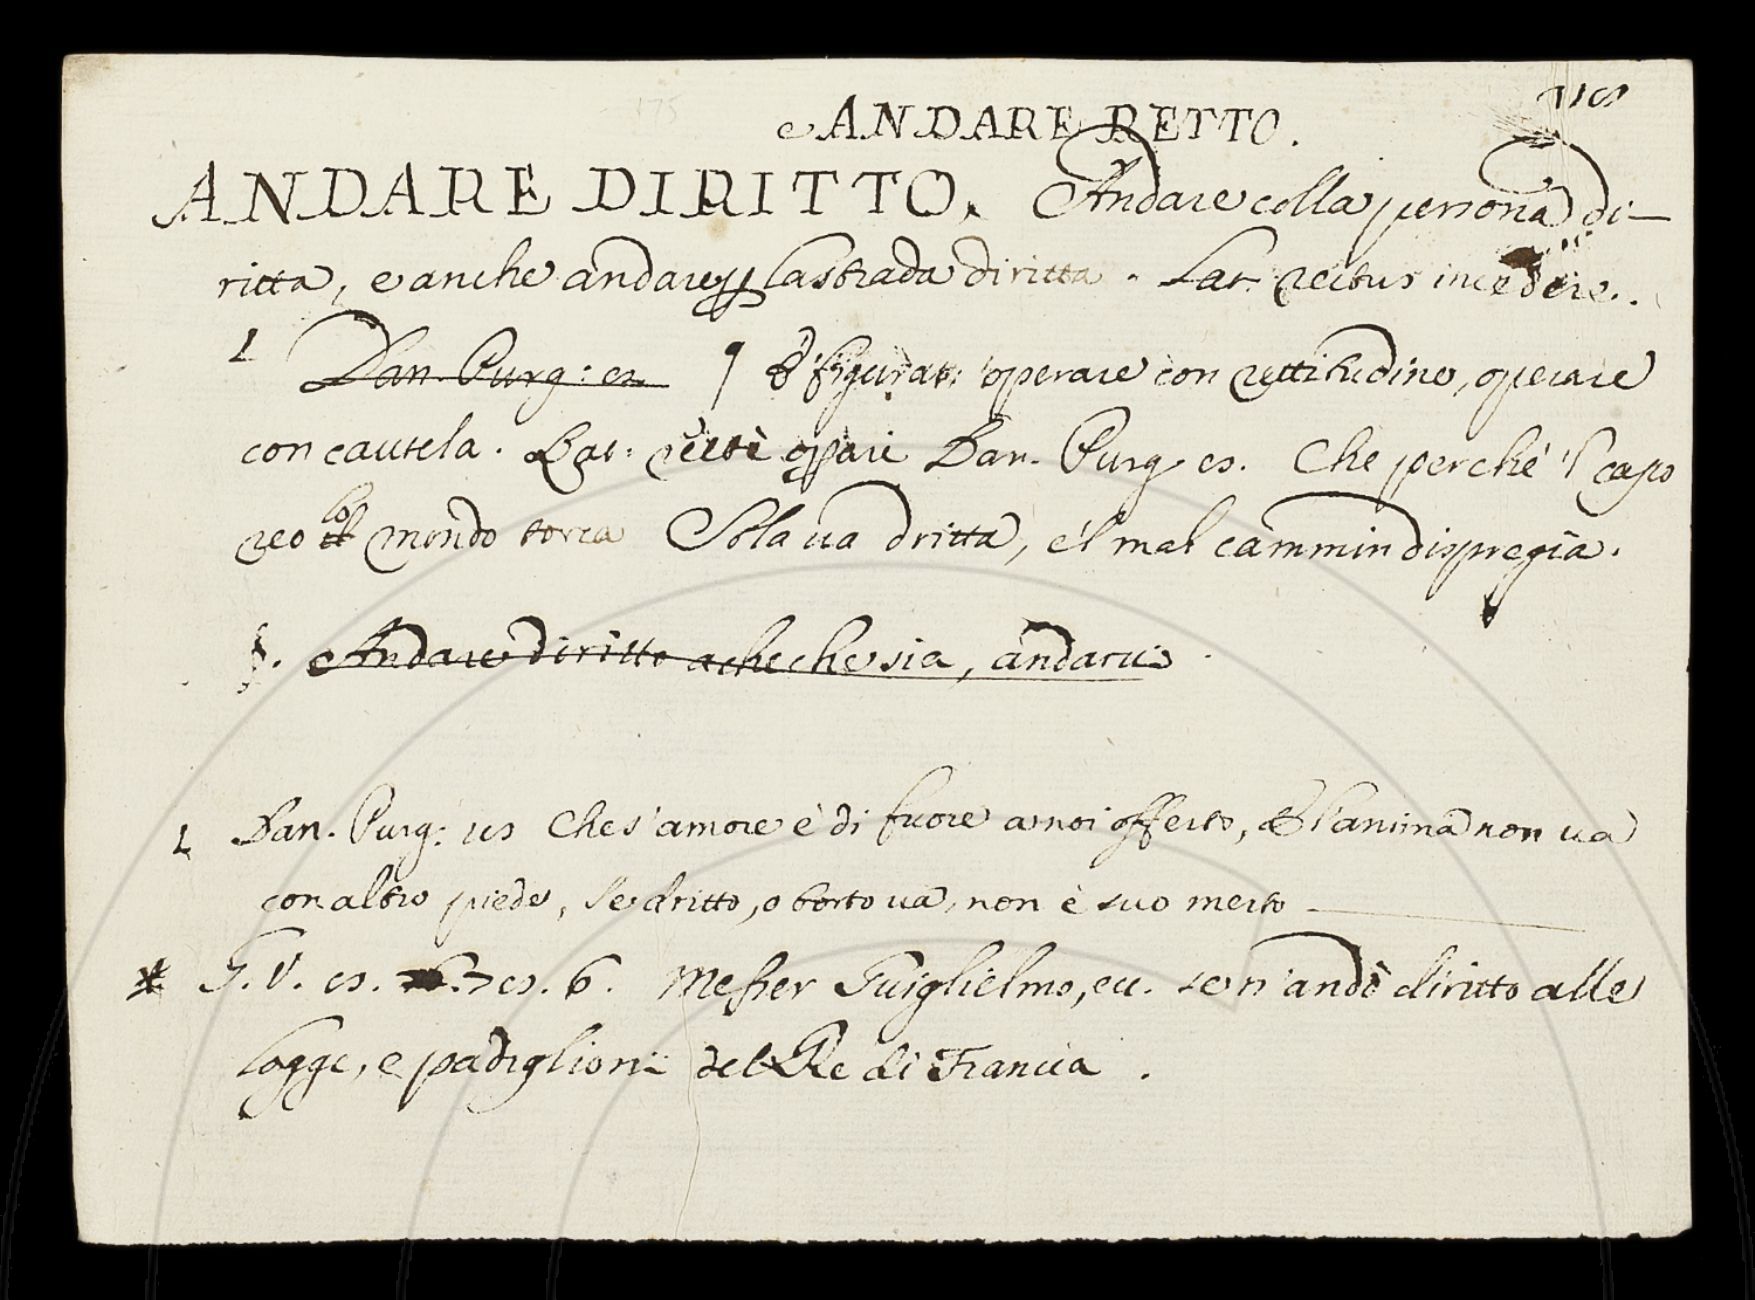 ANDARE RETTO.
ANDARE DIRITTO. Andare colla persona di-
ritta, e anche andare la strada diritta. Lat. rectus incedere.
Dan. Purg: figurat: operare con rettitudine, operare
con cautela. Lat: rectè opari Dan. Purg 8. Che perchè 'l capo
reo lo il mondo torca Sola va dritta, e'l mal cammin dispregia.
§. Andare diritto a chechesia, andarvi
L Dan. Purg: 18 Che s'amore è di fuore a noi offerto, E l'anima non va
con altro piede, Se dritto, o torto va, non è suo merto
* G. V. 8. 6. Messer Guiglielmo, ec. se n'andò diritto alle
logge, e padiglioni del Re di Francia.